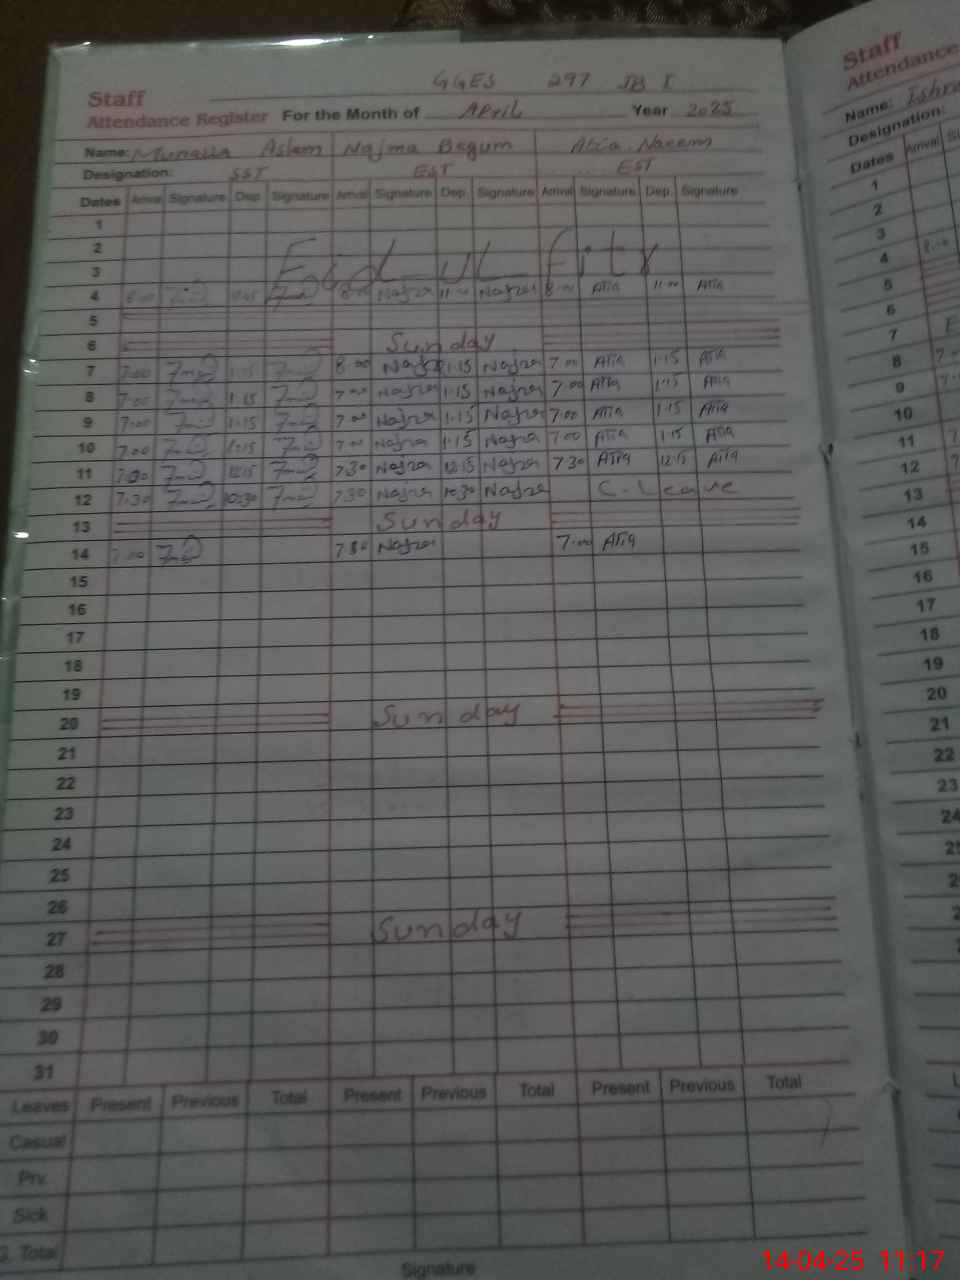 GGES 297 JB I
Staff
Attendance Register For the Month of April Year 2025
Name: Aslam Najma Begum Atia Naeem
Designation: SST EST EST
Dates Arrival Signature Dep. Signature Arrival Signature Dep. Signature Arrival Signature Dep. Signature
1
2
3 Eid ul fitr
4 8:00 11:15 8:00 Najma 11:00 Najma 8:00 Atia 11:00 Atia
5
6 Sunday
7 7:00 1:15 8:00 Najma 1:15 Najma 7:00 Atia 1:15 Atia
8 7:00 1:15 7:00 Najma 1:15 Najma 7:00 Atia 1:15 Atia
9 7:00 1:15 7:00 Najma 1:15 Najma 7:00 Atia 1:15 Atia
10 7:00 7:00 Najma 1:15 Najma 7:00 Atia 1:15 Atia
11 7:30 12:15 7:30 Najma 12:15 Najma 7:30 Atia 12:15 Atia
12 7:30 10:30 7:30 Najma 10:30 Najma C. Leave
13 Sunday
14 7:00 Najma 7:00 Atia
15
16
17
18
19
20 Sunday
21
22
23
24
25
26
27 Sunday
28
29
30
31
Leaves Present Previous Total Present Previous Total Present Previous Total
Casual
Prv.
Sick
G. Total
Signature
Staff
Attendance
Name:
Designation:
Dates Arrival
1
2
3
4 8:00
5
6
7
8
9
10
11
12
13
14
15
16
17
18
19
20
21
22
23
24
14-04-25 11:17